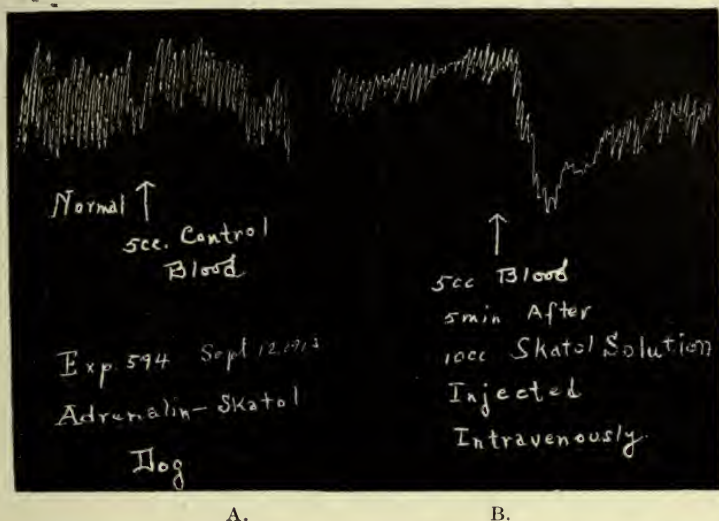 Normal
5cc. Control
Blood
Exp. 594 Sept 12, 1913
Adrenalin-Skatol
Dog
5cc Blood
5min After
10cc Skatol Solution
Injected
Intravenously.
A. B.